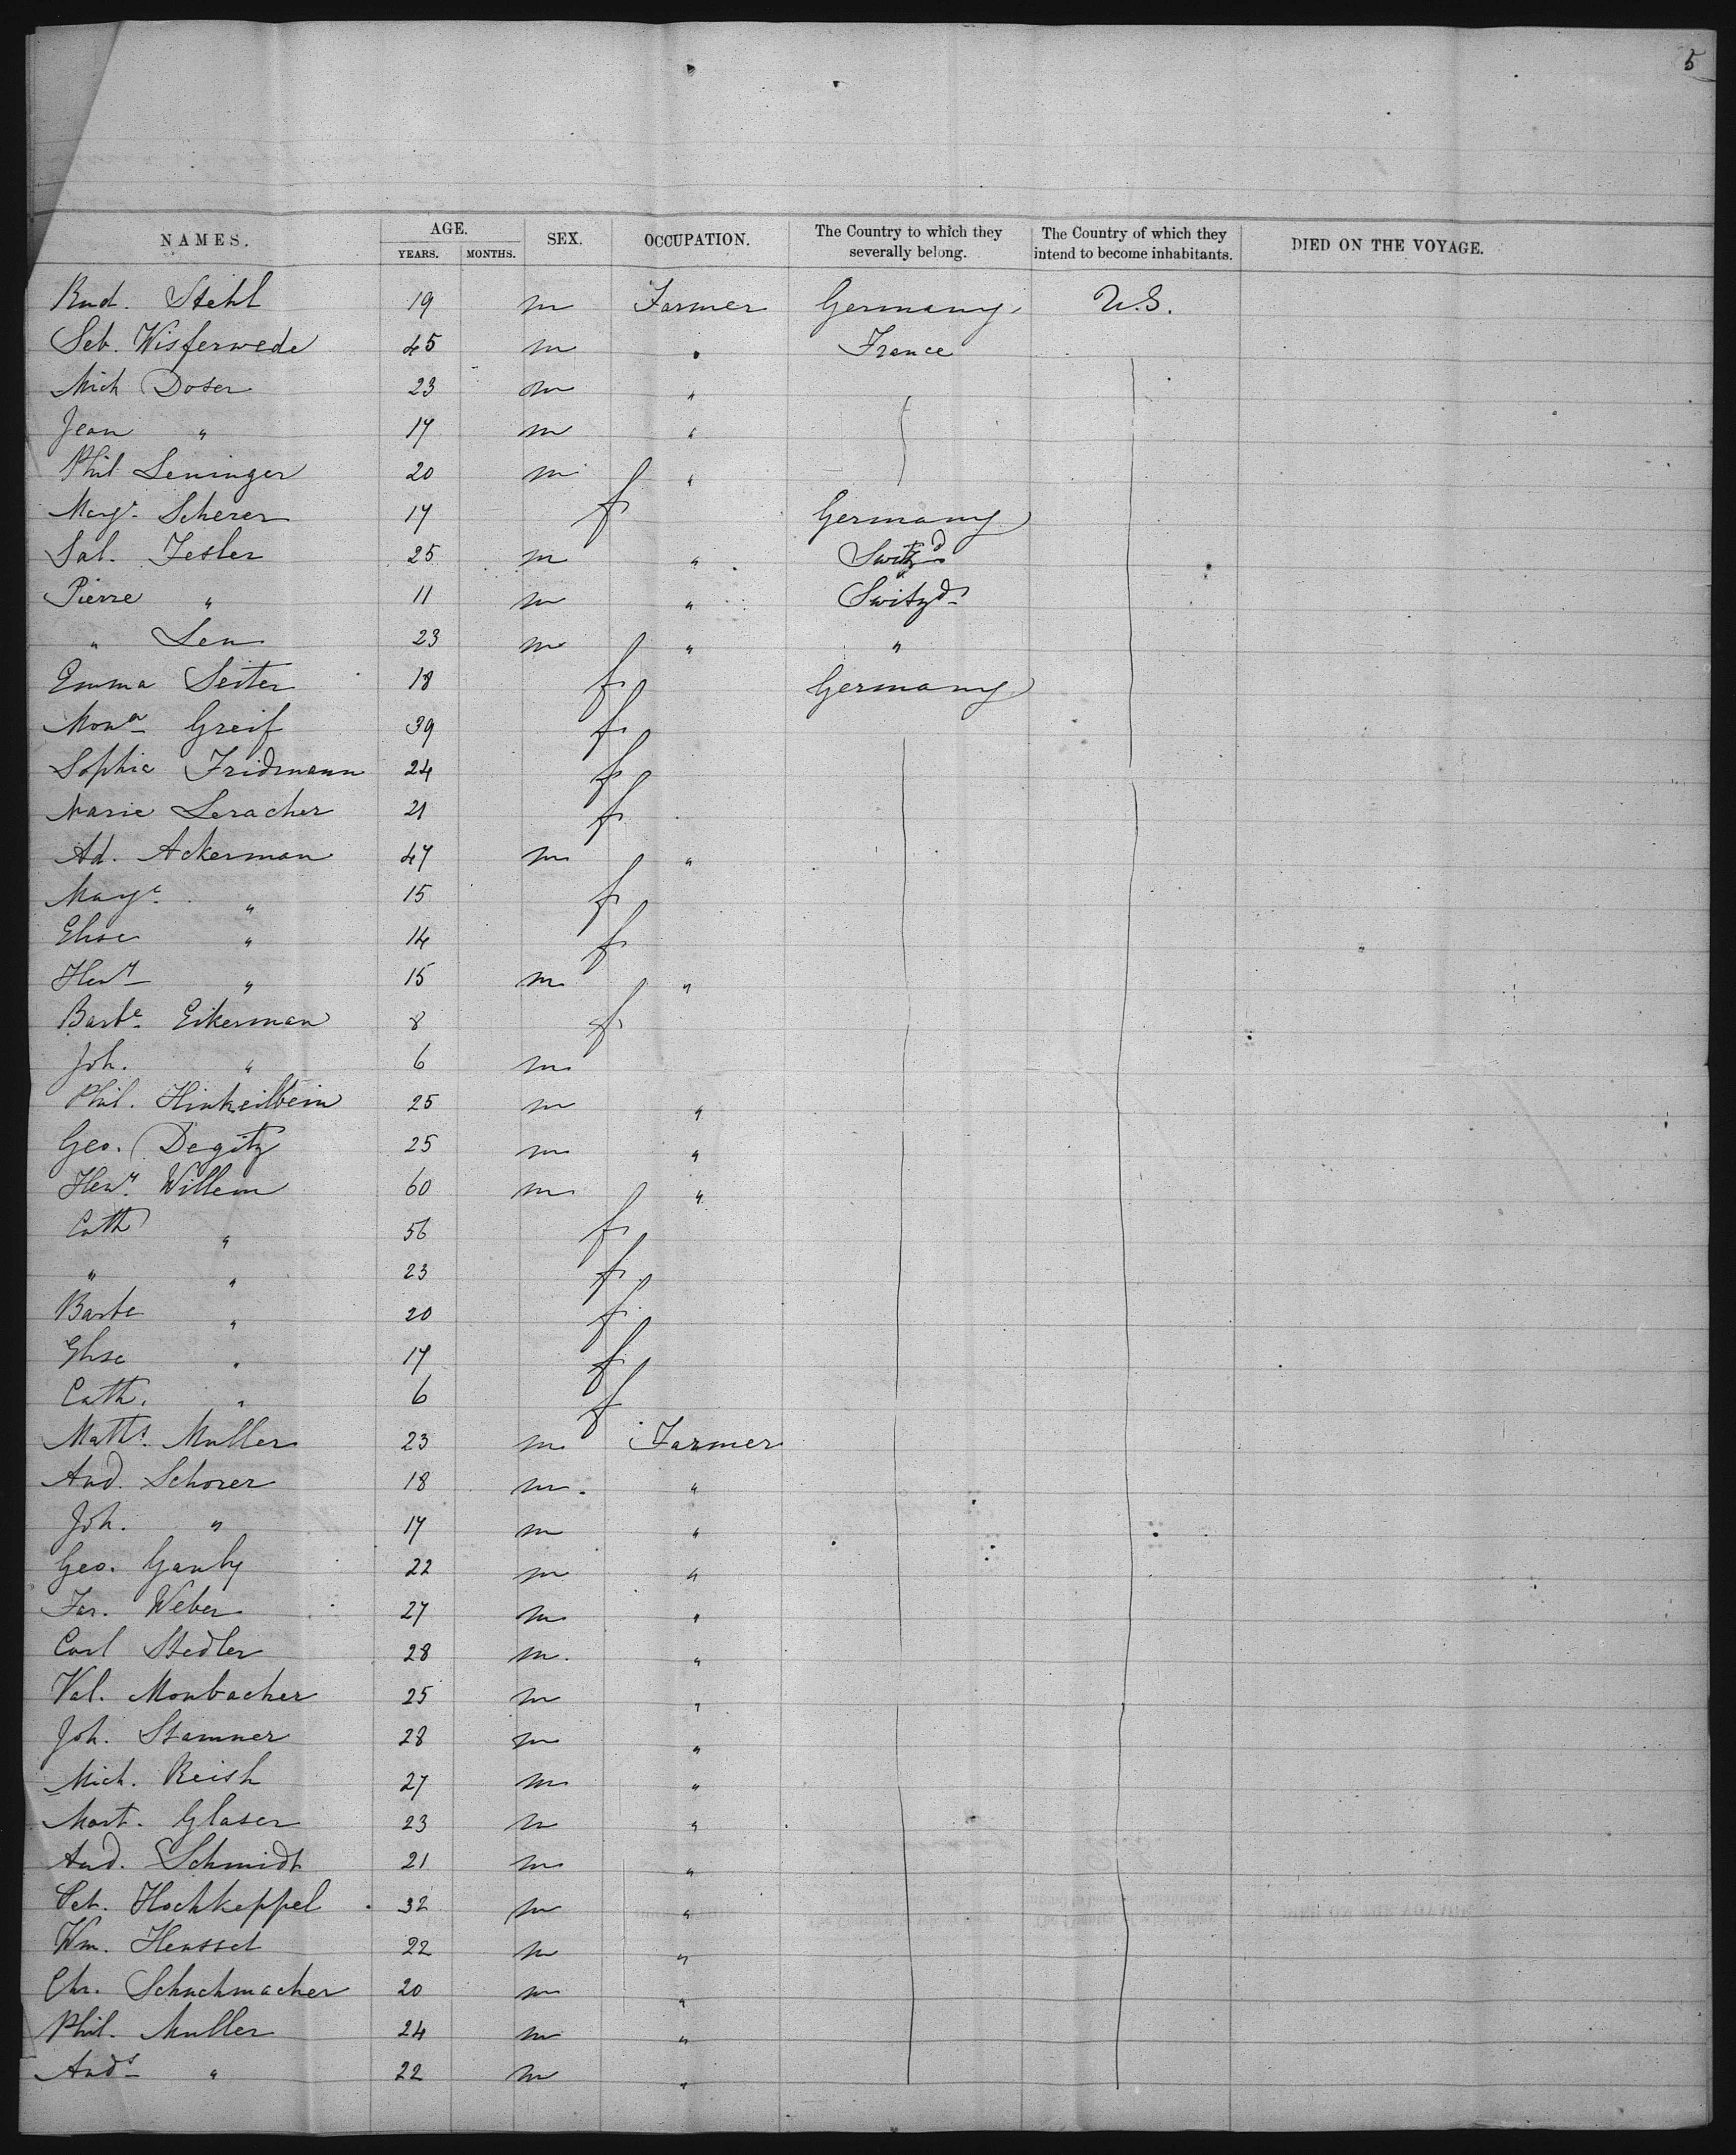 5
NAMES. AGE. YEARS. MONTHS. SEX. OCCUPATION. The Country to which they severally belong. The Country of which they intend to become inhabitants. DIED ON THE VOYAGE.
Rud. Stehl 19 m Farmer Germany U.S.
Seb. Wisferwede 45 m " France
Mich Doser 23 m "
Jean " 17 m "
Phil Leninger 20 m "
Marg. Scherer 17 f Germany
Sal. Fesler 25 m " Switzd
Pierre " 11 m " Switzd
" Leu 23 m " "
Emma Seiter 18 f Germany
Mona Greif 39 f
Sophie Fridmann 24 f
Marie Leracher 21 f
Ad. Ackerman 47 m "
Marge " 15 f
Elise " 14 f
Heny " 15 m "
Barbe Eikerman 8 f
Joh. " 6 m
Phil. Hinkeilbein 25 m "
Geo. Degitz 25 m "
Heny. Willem 60 m "
Cath " 56 f
" " 23 f
Barbe " 20 f
Elise " 17 f
Cath. " 6 f
Matts. Muller 23 m Farmer
And. Schorer 18 m. "
Joh. " 17 m "
Geo. Gauly 22 m "
Jar. Weber 27 m "
Carl Stedler 28 m. "
Val. Monbacher 25 m "
Joh. Stamner 28 m "
Mich. Reish 27 m "
Mart. Glaser 23 m "
And. Schmidt 21 m "
Pet. Hochkeppel 32 m "
Wm. Henssel 22 m "
Chr. Schuchmacher 20 m "
Phil. Muller 24 m "
Ands " 22 m "